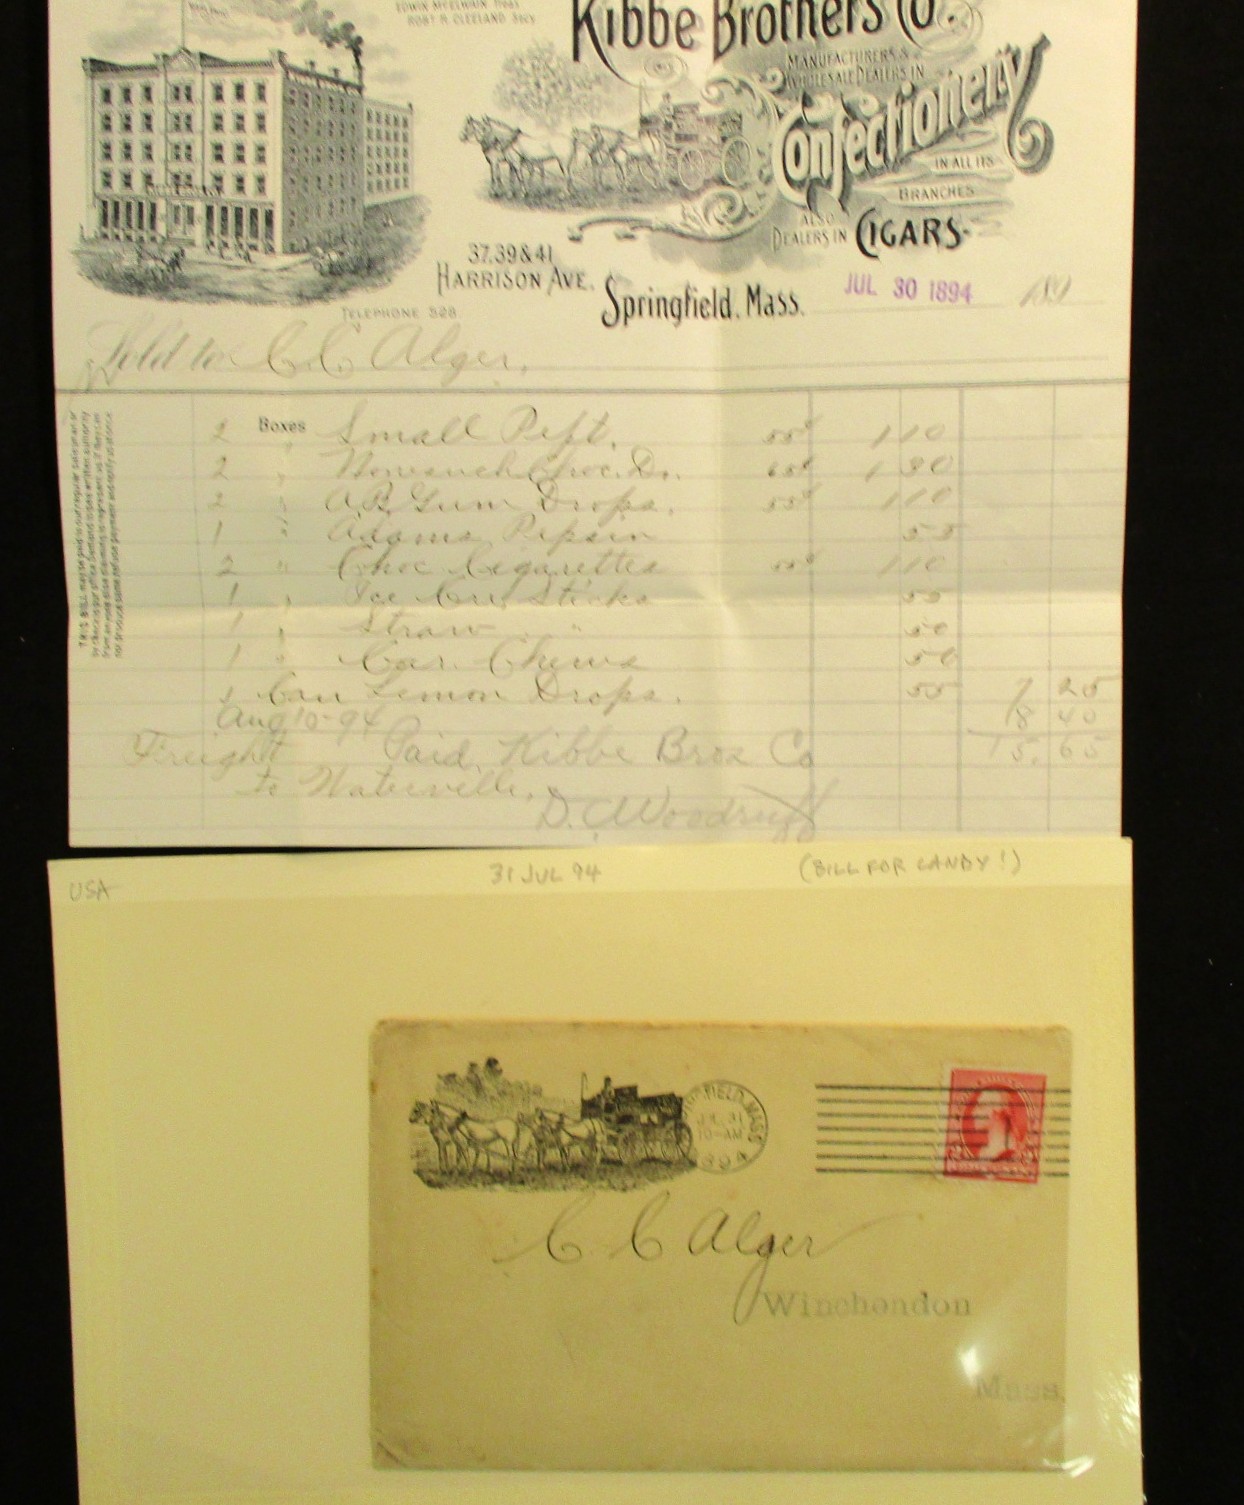 EDWIN McELWAIN Treas
ROBT R CLEELAND Secy
Kibbe Brothers Co.
MANUFACTURERS &
WHOLESALE DEALERS IN
Confectionery
IN ALL ITS
BRANCHES
ALSO
DEALERS IN CIGARS
37.39 & 41
HARRISON AVE.
Springfield, Mass. JUL 30 1894 189
TELEPHONE 528
Sold to C.C. Alger,
2 Boxes Small Pept. 55¢ 1 10
2 " Choc. Dr. 65¢ 1 30
2 " A.B. Gum Drops. 55¢ 1 10
1 " Adams Pepsin 55
2 " Choc Cigarettes 55¢ 1 10
1 " Ice Cr. Sticks 55
1 " Straw " 50
1 " Car. Chews 50
1 Can Lemon Drops. 55 7 25
Aug 10-94 8 40
Freight Paid Kibbe Bros Co 15.65
to Waterville,
D.C. Woodruff
USA 31 JUL 94 (BILL FOR CANDY!)
SPRINGFIELD, MASS.
JUL 31
10-AM
1894
C C Alger
Winchendon
Mass.